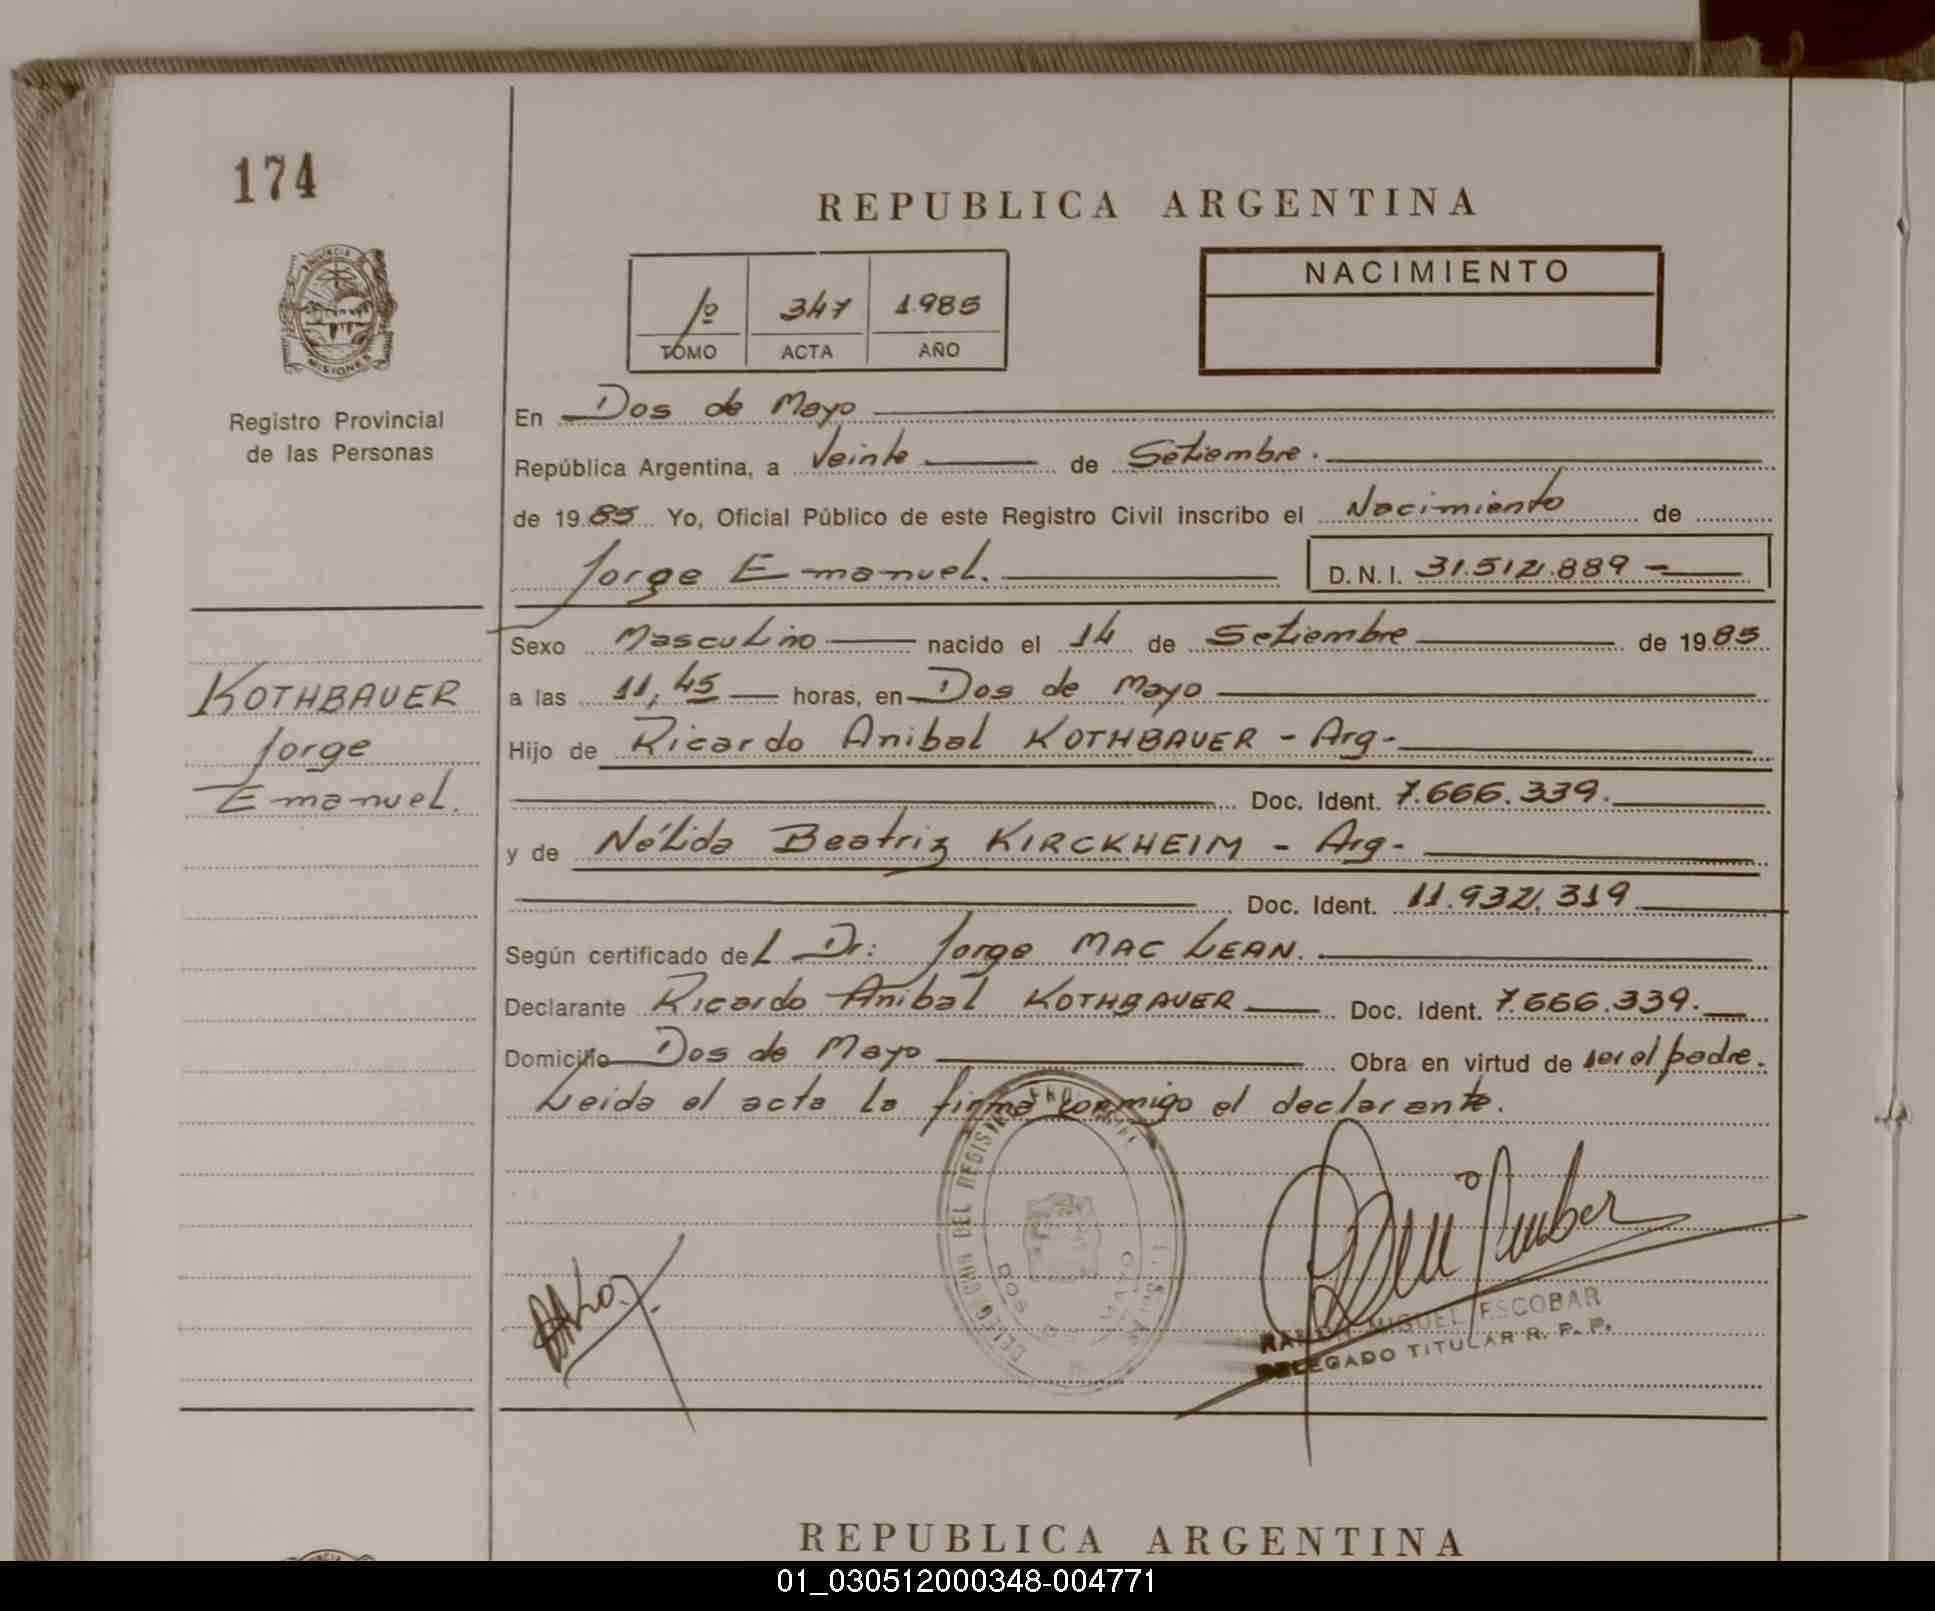 174
REPUBLICA ARGENTINA
PROVINCIA DE
MISIONES
1º 347 1.985
TOMO ACTA AÑO
NACIMIENTO
Registro Provincial
de las Personas
En Dos de Mayo
República Argentina, a Veinte de Setiembre.
de 1985 Yo, Oficial Público de este Registro Civil inscribo el Nacimiento de
Jorge Emanuel. D.N.I. 31.512.889 -
Sexo Masculino nacido el 14 de Setiembre de 1985
a las 11,45 horas, en Dos de Mayo
KOTHBAUER
Jorge
Emanuel.
Hijo de Ricardo Anibal KOTHBAUER - Arg-
Doc. Ident. 7.666.339.
y de Nélida Beatriz KIRCKHEIM - Arg-
Doc. Ident. 11.932.319
Según certificado del Dr: Jorge MAC LEAN.
Declarante Ricardo Anibal KOTHBAUER Doc. Ident. 7.666.339.
Domicilio Dos de Mayo Obra en virtud de ser el padre.
Leida el acta la firma conmigo el declarante.
DEL REGISTRO
DOS DE MAYO
MIGUEL ESCOBAR
DELEGADO TITULAR R. P. P.
REPUBLICA ARGENTINA
01_030512000348-004771